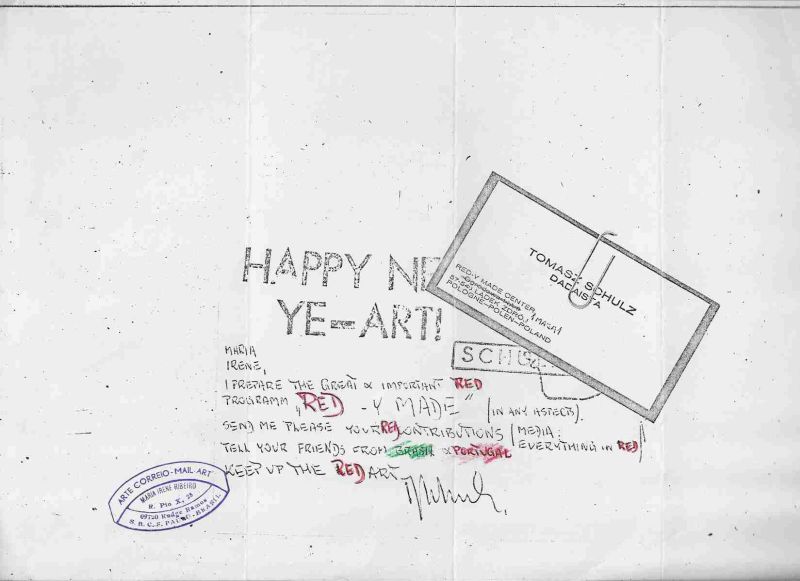 HAPPY NE
YE-ART!
TOMASZ SCHULZ
DADAISTA
RED-Y MADE CENTER
57-541 LADEK ZDROJ
POLOGNE-POLEN-POLAND
MARIA
IRENE,
I PREPARE THE GREAT & IMPORTANT RED
PROGRAMM „RED -Y MADE" (IN ANY ASPECTS).
SEND ME PLEASE YOUR RED CONTRIBUTIONS / MEDIA:
TELL YOUR FRIENDS FROM BRASIL & PORTUGAL EVERYTHING IN RED/
KEEP UP THE RED ART
ARTE CORREIO-MAIL-ART
MARIA IRENE RIBEIRO
R. Pio X, 28
09720 Rudge Ramos
S. B. C. - S. PAULO-BRASIL